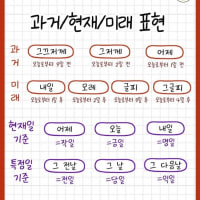 과거/현재/미래 표현
과거 그끄저께 그저께 어제
오늘로부터 3일 전 오늘로부터 2일 전 오늘로부터 1일 전
미래 내일 모레 글피 그글피
오늘로부터 1일 후 오늘로부터 2일 후 오늘로부터 3일 후 오늘로부터 4일 후
현재일 어제 오늘 내일
기준 =작일 =금일 =명일
특정일 그 전날 그 날 그 다음날
기준 =전일 =당일 =익일